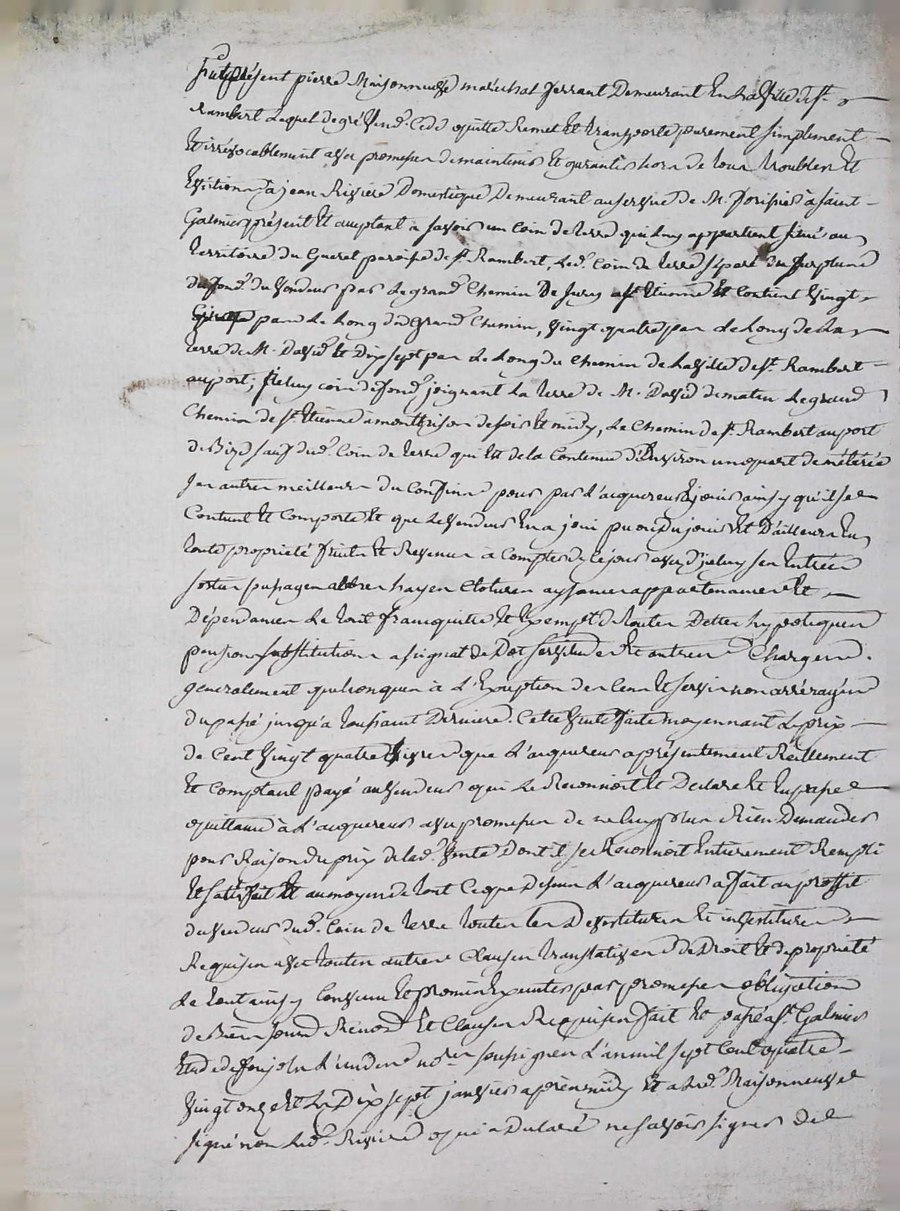 fut présent pierre Maisonneuve maréchal ferrant Demeurant En la ville de St.
Rambert Lequel de gré vend. Cede quitte Remet Et transporte purement simplement
Et irrévocablement avec promesse de maintenir Et garantir hors de tous troubles Et
Eviction à jean Riviere Domestique Demeurant au service de M. à saint
Galmier présent Et acceptant à savoir un Coin de terre qui luy appartient situé au
territoire du paroisse de St. Rambert, led. Coin de terre séparé du surplus
du fond du Vendeur par Le grand Chemin De à St Etienne Et Contient Vingt
pas Le Long dud grand Chemin, Vingt quatre pas Le Long de La
terre de M. David Et Dix sept pas Le Long du Chemin de La Ville de St. Rambert
au port, Iceluy coin de fond joignant La terre de M. David de matin Le grand
Chemin de St. Etienne à montbrison de soir Et midy, Le Chemin de St. Rambert au port
de Bize sauf dud. Coin de terre qui Est de la Contenue d'Environ un quart de métérée
ses autres meilleurs Confins pour par L'acquereur En jouir ainsy qu'il se
Contient Et Comporte Et que Le Vendeur En a joui pu ou Du jouir Et D'ailleurs En
toute propriété fruits Et Revenus à Compter de ce jour avec d'iceluy ses Entrées
sorties passages arbres hayes Clotures aysances appartenances Et
Dépendances Le tout franc quitte Et Exempt De toutes Dettes hypoteques
pensions substitutions assignat de Dot servitudes Et autres Charges
generalement quelconques à L'Exception des Cens Et servis non arréragés
du passé jusqu'à toussaint Derniere. Cette Vente faite moyennant Le prix
de Cent Vingt quatre Livres que L'acquereur a présentement Réellement
Et Comptant payé au Vendeur qui Le Reconnoit Et Declare Et En passe
quittance à L'acquereur avec promesse de ne luy plus Rien Demander
pour Raison du prix de lad. Vente Dont il se Reconnoit Entierement Rempli
Et satisfait Et au moyen de tout Ce que Dessus L'acquereur a fait au proffit
du Vendeur dud. Coin de terre toutes Les Devestitures Et investitures
Requises avec toutes autres Clauses translatives De Droit Et de propriété
Le tout ainsy Convenu Et promis Executer par promesse obligation
de Biens soum Renon Et Clauses Requises fait Et passé à St. Galmier
Etude de L'un des nores soussignés L'an mil sept Cent quatre
Vingt onze Et Le Dix sept janvier après midy Et a Led. Maisonneuve
signé non Led. Riviere qui a Declaré ne savoir signer de